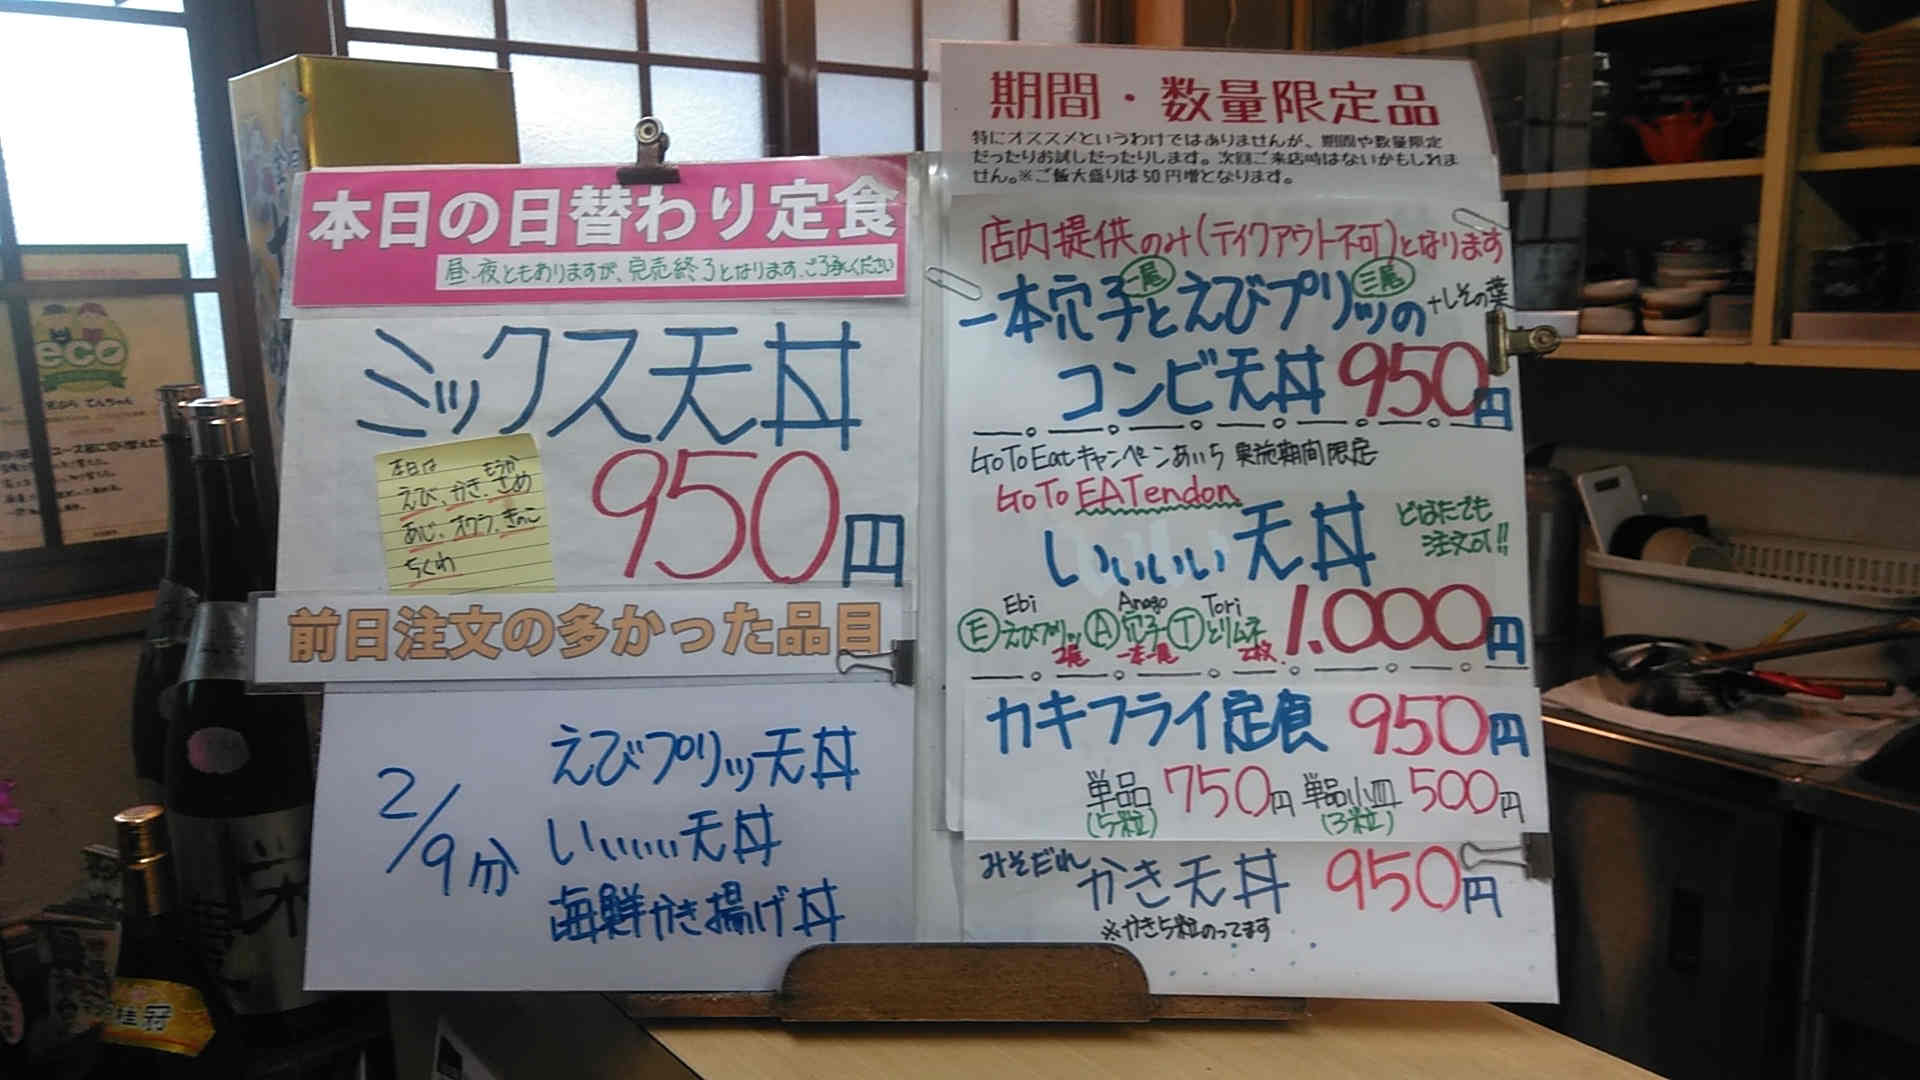 本日の日替わり定食
昼・夜ともありますが、完売終了となります。ご了承ください
ミックス天丼
950円
本日は もうか
えび、かき、さめ
あじ、オクラ、きのこ
ちくわ
前日注文の多かった品目
2/9分
えびプリッ天丼
いぃぃぃぃ天丼
海鮮かき揚げ丼
期間・数量限定品
特にオススメというわけではありませんが、期間や数量限定
だったりお試しだったりします。次回ご来店時はないかもしれま
せん。※ご飯大盛りは50円増となります。
店内提供のみ(テイクアウト不可)となります
一本穴子一尾とえびプリッ三尾の+しその葉
コンビ天丼 950円
GoToEatキャンペーンあいち 実施期間限定
GoTo EATendon
いぃぃぃい天丼 どなたでも
注文可!!
Ebi Anago Tori
E えびプリッ A 穴子 T とりムネ 1,000円
2尾 一本一尾 2枚
カキフライ定食 950円
単品 750円 単品小皿 500円
(5粒) (3粒)
みそだれ かき天丼 950円
※かき5粒のってます
eco
桂冠